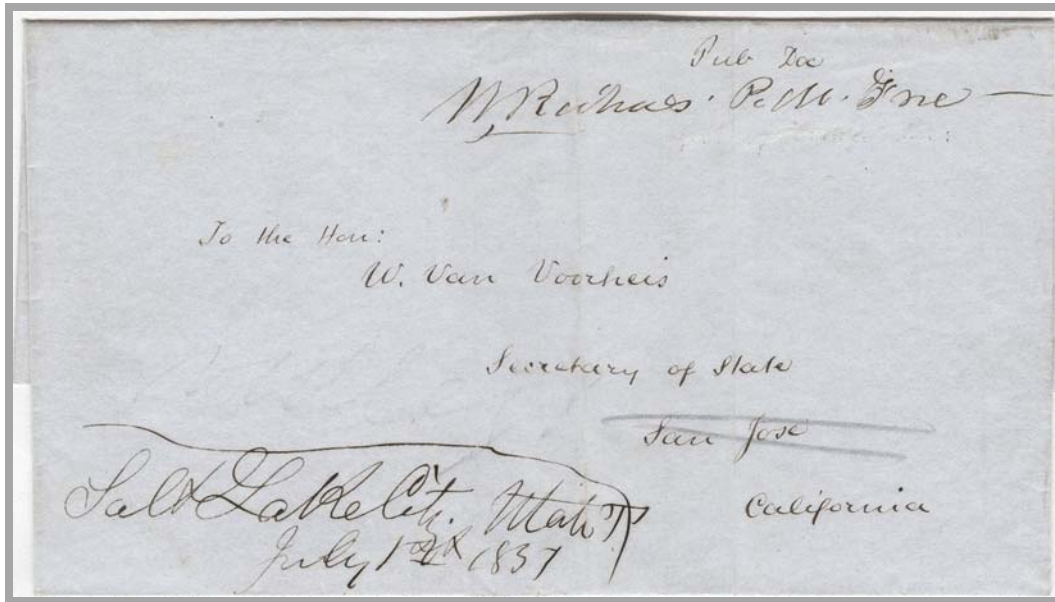 Pub Doc
W Richards. P.M. Free
To the Hon:
W. Van Voorheis
Secretary of State
San Jose
California
Salt Lake City. Utah T
July 1st